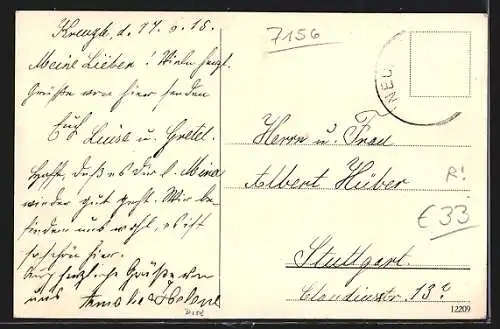 d. 17. 9. 18.
Meine Lieben! Viele herzl.
Grüße von hier senden
Euch
Luise u. Gretel.
Hoffe, daß es der l. Mina
wieder gut geht. Wir be-
finden uns wohl, es ist
so schön hier.
Auch herzliche Grüße von
uns
7156
Herrn u. Frau
Albert Huber
R!
€33
Stuttgart.
Claudiusstr. 13
12209